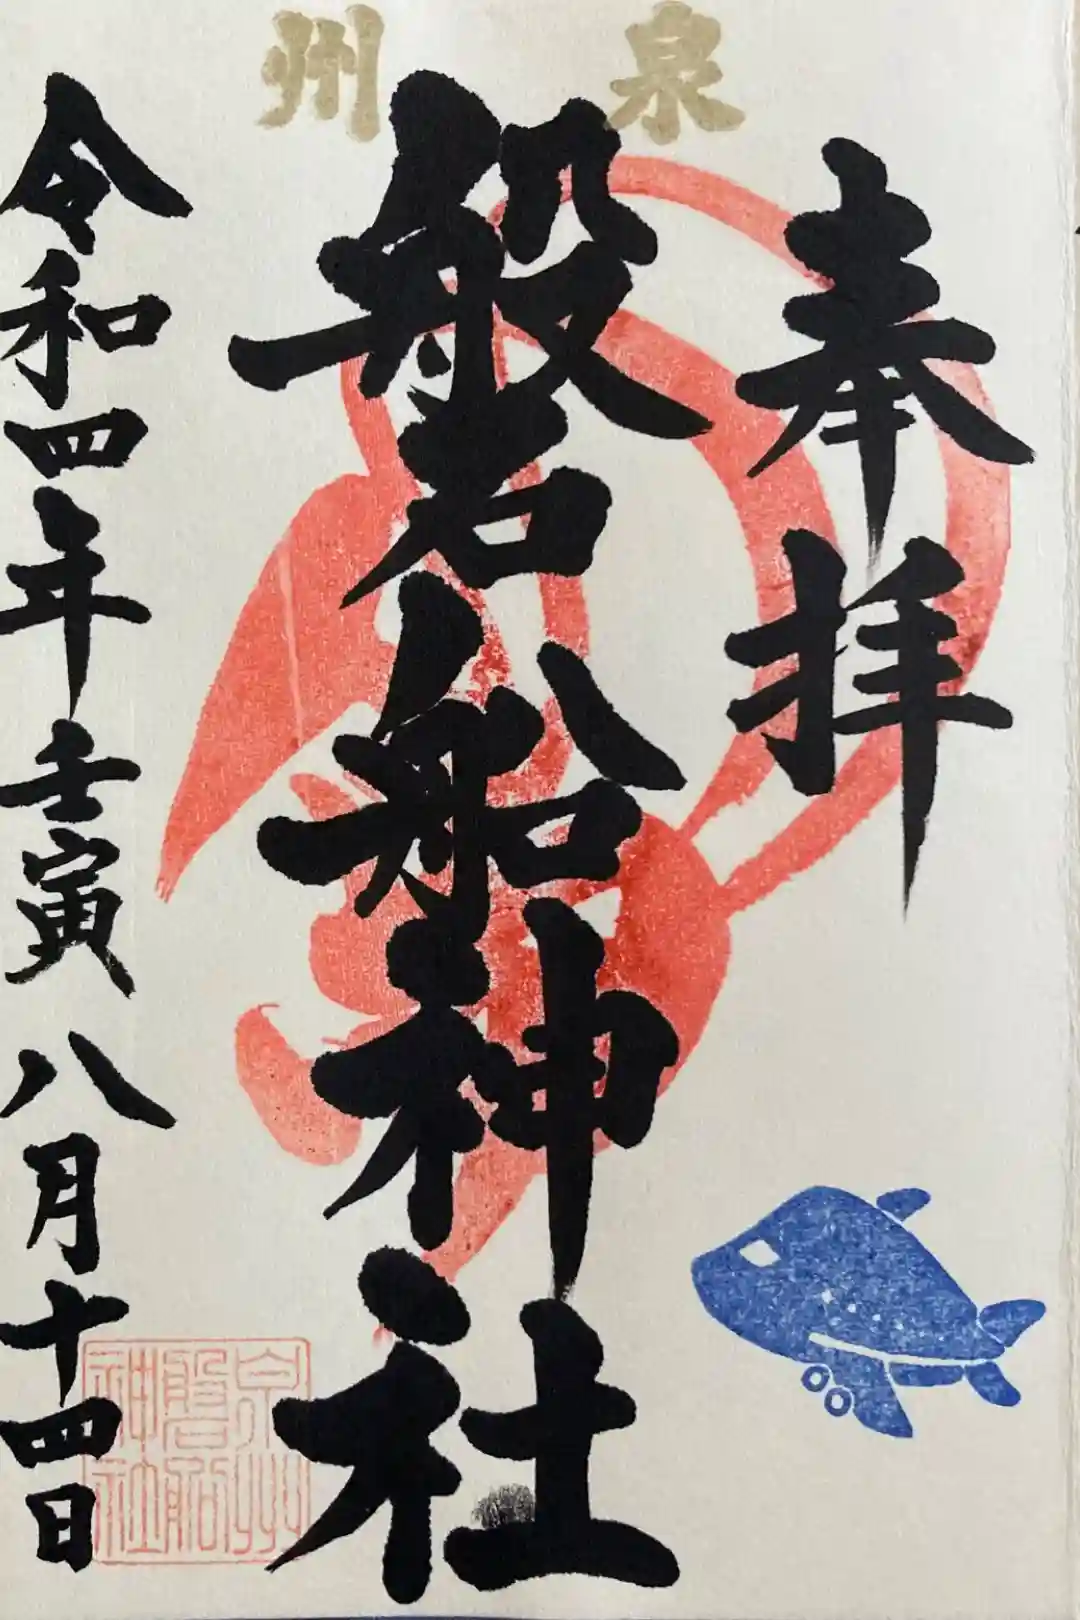 泉州
奉拝
般若船神社
令和四年壬寅八月十四日
泉州
磐船
神社